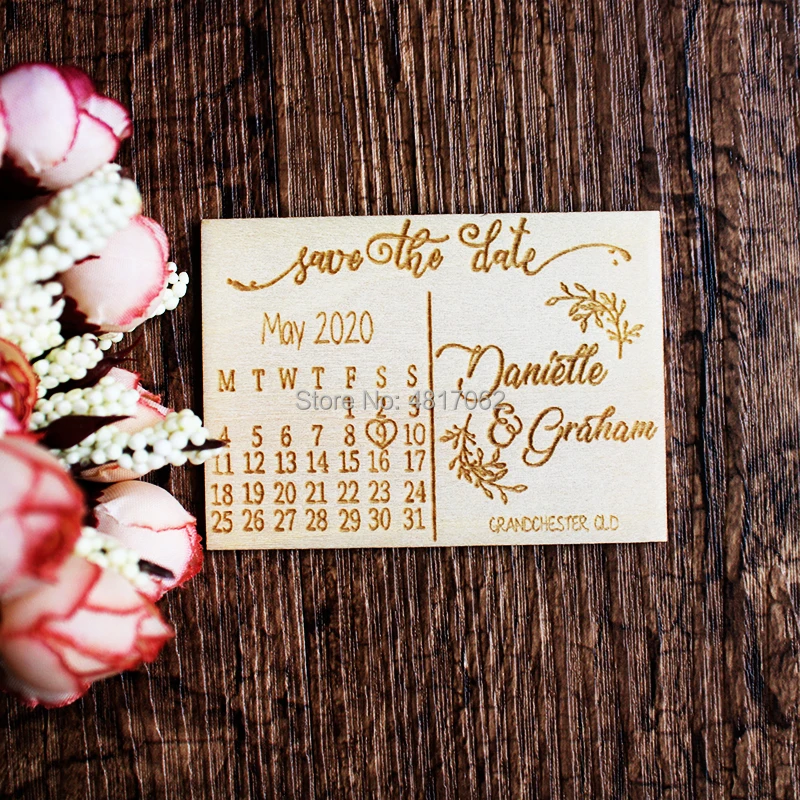 save the date
May 2020
M T W T F S S
1 2 3
4 5 6 7 8 9 10
11 12 13 14 15 16 17
18 19 20 21 22 23 24
25 26 27 28 29 30 31
Danielle
& Graham
GRANDCHESTER, QLD
Store No: 4817062